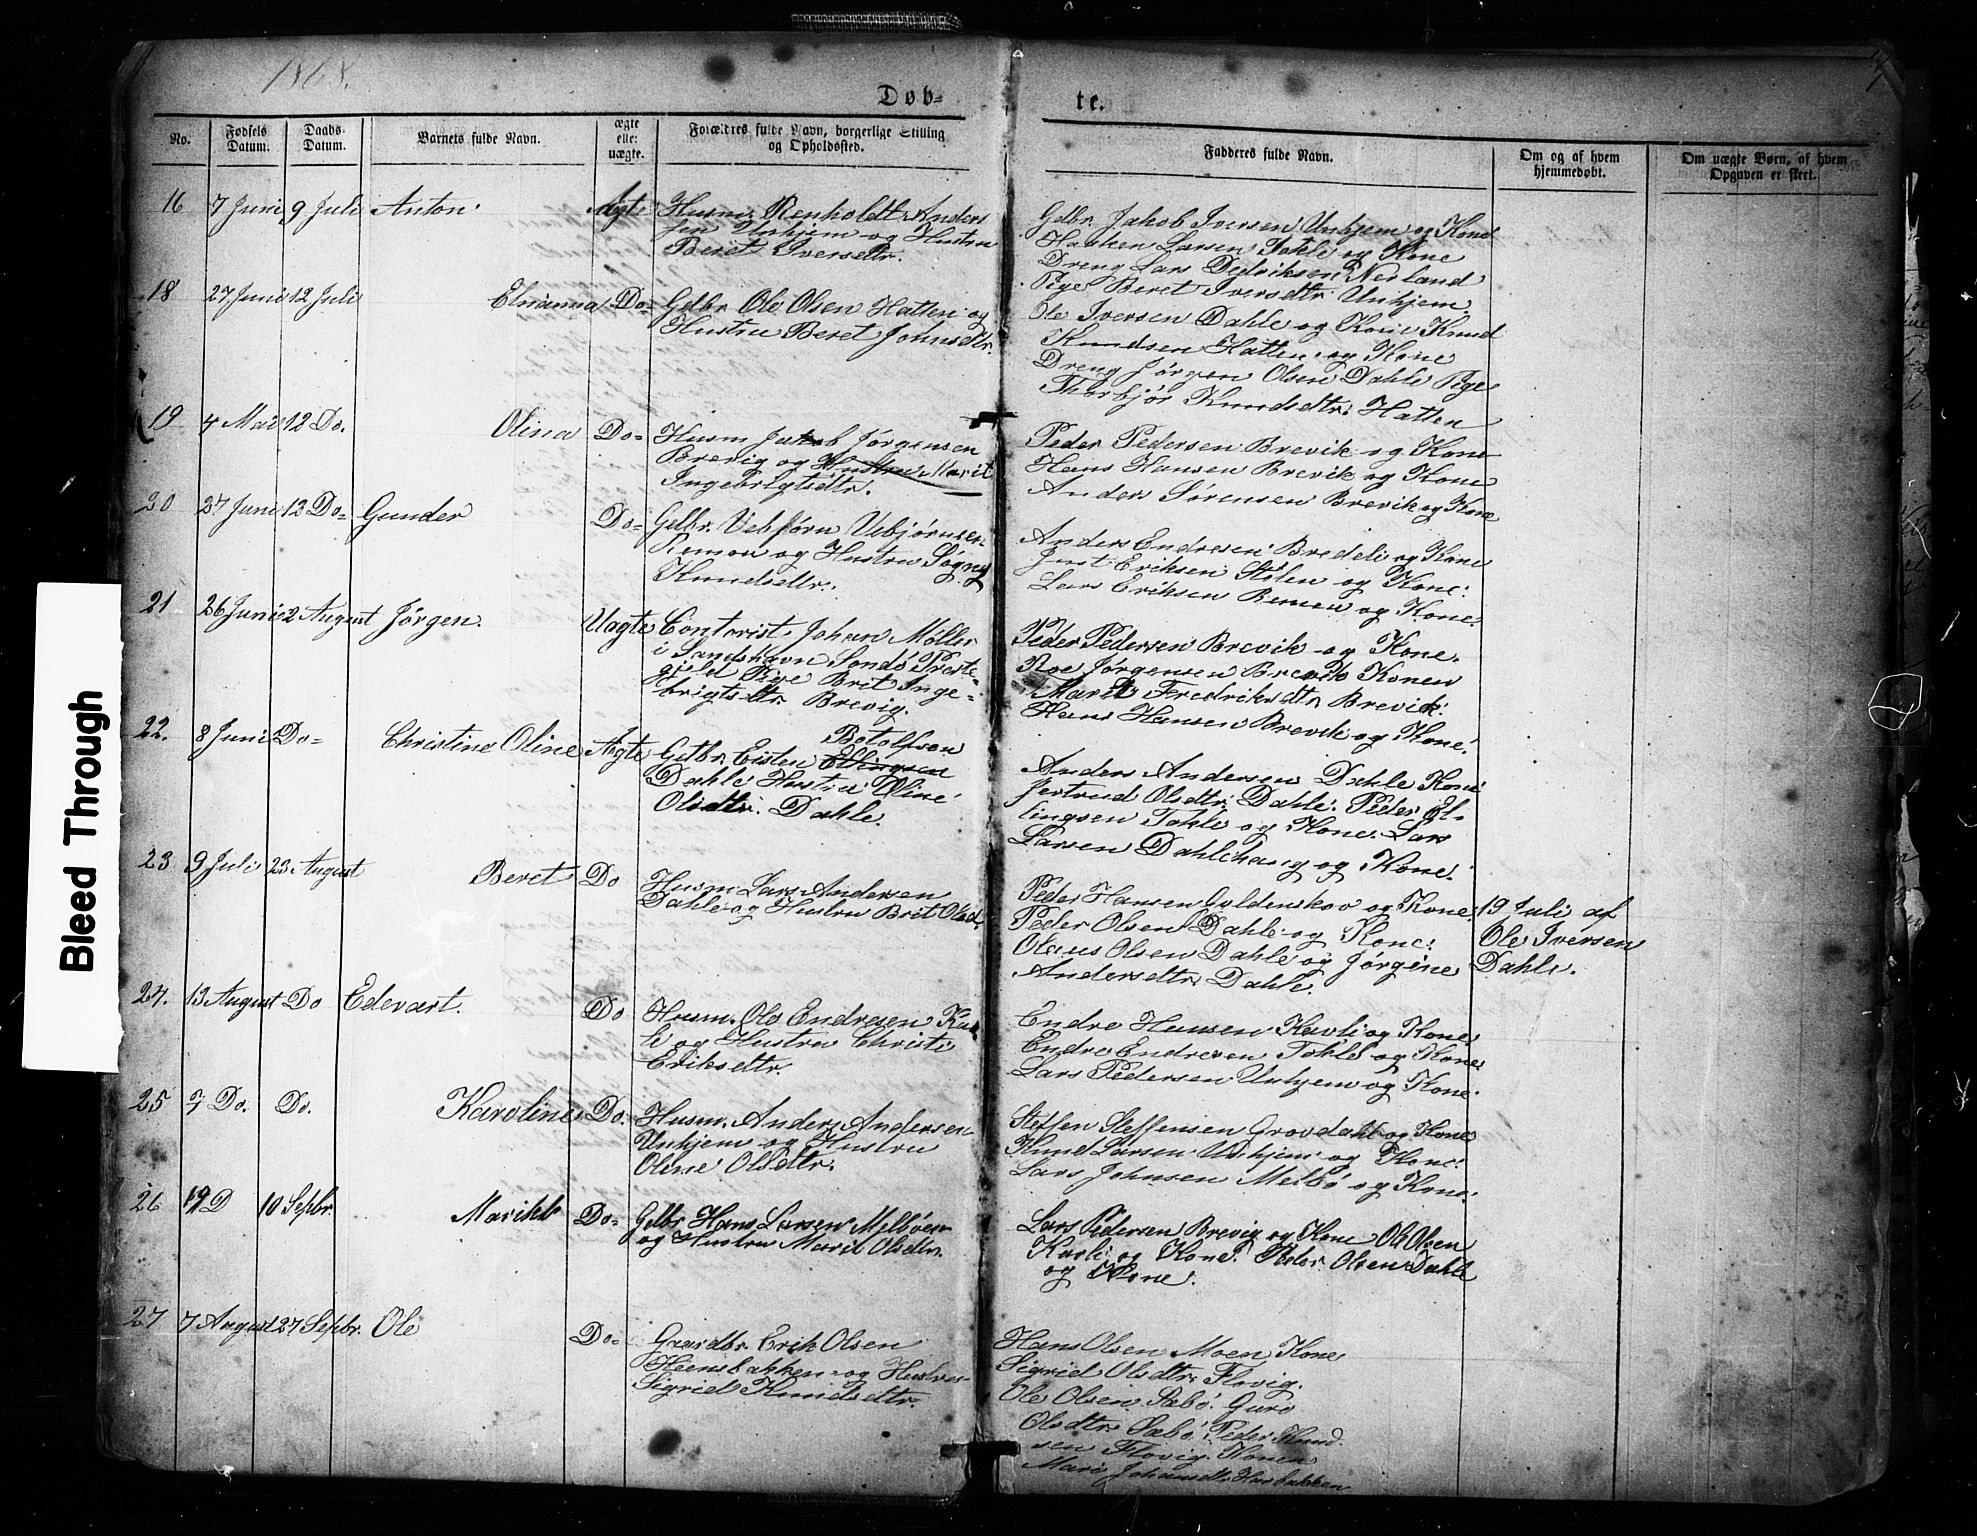 1868.
Døb=
te.
No.
Fødsels Datum.
Daabs- Datum.
Barnets fulde Navn.
ægte elle: uægte.
Forældres fulde Navn, borgerlige Stilling og Opholdssted.
Fadderes fulde Navn.
Om og af hvem hjemmedøbt.
Om uægte Børn, af hvem Opgaven er skeet.
16 7 Juni 9 Juli Anton. Ægte Husm. Renholdt Anders
sen Unhjem og Hustru
Beret Iversdtr.
Gdbr. Jakob Iversen Unhjem og Kone
Hacken Larsen Tokle og Kone
Dreng Lars Pedriksen Nerland
Pige Beret Iversdtr Unhjem.
18 27 Juni 12 Juli Elnanna Do= Gdbr Ole Olsen Hatten og
Hustru Beret Johnsdtr.
Ole Iversen Dahle og Kone Knud
Knudsen Hatten og Kone
Dreng Jørgen Olsen Dahle Pige
Thorbjør Knudsdtr. Hatten
19 4 Mai 12 Do. Olina Do= Husm Jakob Jørgensen
Brevig og Hustru Marit
Ingebrigtsdtr.
Peder Pedersen Brevik og Kone
Hans Hansen Brevik og Kone
Anders Sørensen Brevik og Kone
20 27 Juni 12 Do= Gunder Do= Gdbr. Vebjørn Vebjørnsen
Remen og Hustru Søgny
Knudsdtr.
Anders Endresen Bredeli og Kone
Just Eriksen Stolen og Kone.
Lars Eriksen Remen og Kone.
21 26 Juni 2 August Jørgen. Uægte Contorist Johan Møller
i Sandshavn Søndø Preste=
gjeld Pige Brit Inge=
brigtsdtr. Brevig.
Peder Pedersen Brevik og Kone.
Roe Jørgensen Brevik Konen
Marit Fredriksdtr Brevik.
Hans Hansen Brevik og Kone.
22. 8 Juni Do= Christine Oline Ægte Gdbr. Eisten Ellingsen Botolfsen
Dahle Hustru Oline
Olsdtr. Dahle.
Anders Andersen Dahle Kone
Jertrud Olsdtr. Dahle. Peder El-
lingsen Tokle og Kone. Lars
Larsen Dahlehaug og Kone.
23 9 Juli 23 August Beret Do Husm Lars Andersen
Dahle og Hustru Brit Olsd.
Peder Hansen Gyldenskov og Kone
Peder Olsen Dahle og Kone.
Olaus Olsen Dahle og Jørgine
Andersdtr. Dahle.
19 Juli af
Ole Iversen
Dahle.
24. 13 August Do Edevart. Do Husm. Ole Endresen Kav
li og Hustru Christi
Eriksdtr.
Endre Hansen Kavli og Kone
Endre Endresen Tokle og Kone
Lars Pedersen Unhjem og Kone.
25 7 Do. Do. Karoline Do. Husm. Anders Andersen
Unhjem og Hustru
Oline Olsdtr.
Steffen Steffensen Grovdahl og Kone
Knud Larsen Unhjem og Kone.
Lars Johnsen Melbø og Kone.
26 19 D 10 Sepbr. Marikk Do= Gdbr Hans Larsen Melbøen
og Hustru Marit Olsdtr.
Lars Pedersen Brevig og Kone Ole Olsen
Kavli og Kone. Peder Olsen Dahle
og Kone.
27 7 August 27 Sepbr. Ole Do= Gaardbr Erik Olsen
Heensbakken og Hustru
Sigrid Knudsdtr.
Hans Olsen Moen Kone
Sigrid Olsdtr. Flovig.
Ole Olsen Sæbø. Guro
Olsdtr Sæbø. Peder Knud-
sen Flovig. Konen
Mari Johansdtr Hasbakken
Bleed Through